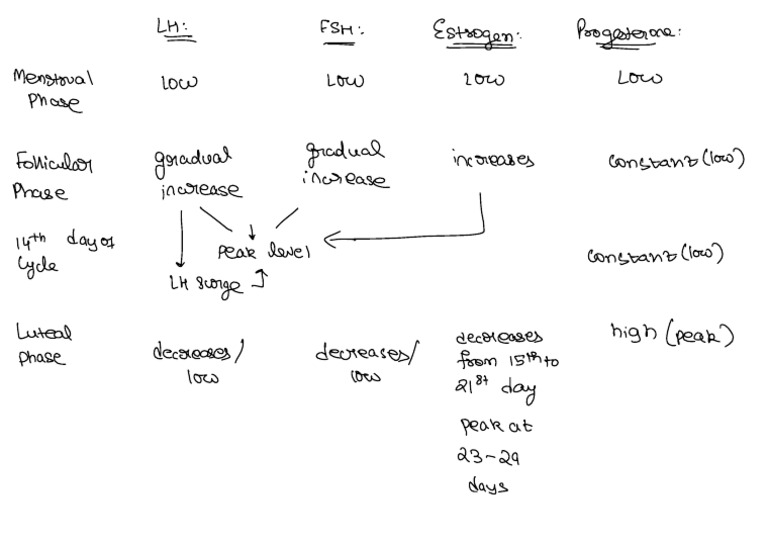 LH: FSH: Estrogen: Progesterone:
Menstrual Phase low Low low Low
Follicular Phase gradual increase gradual increase increases constant (low)
14th day of Cycle Peak level constant (low)
LH surge
Luteal Phase decreases/ low decreases/ low decreases from 15th to 21st day high (peak)
peak at
23-29
days